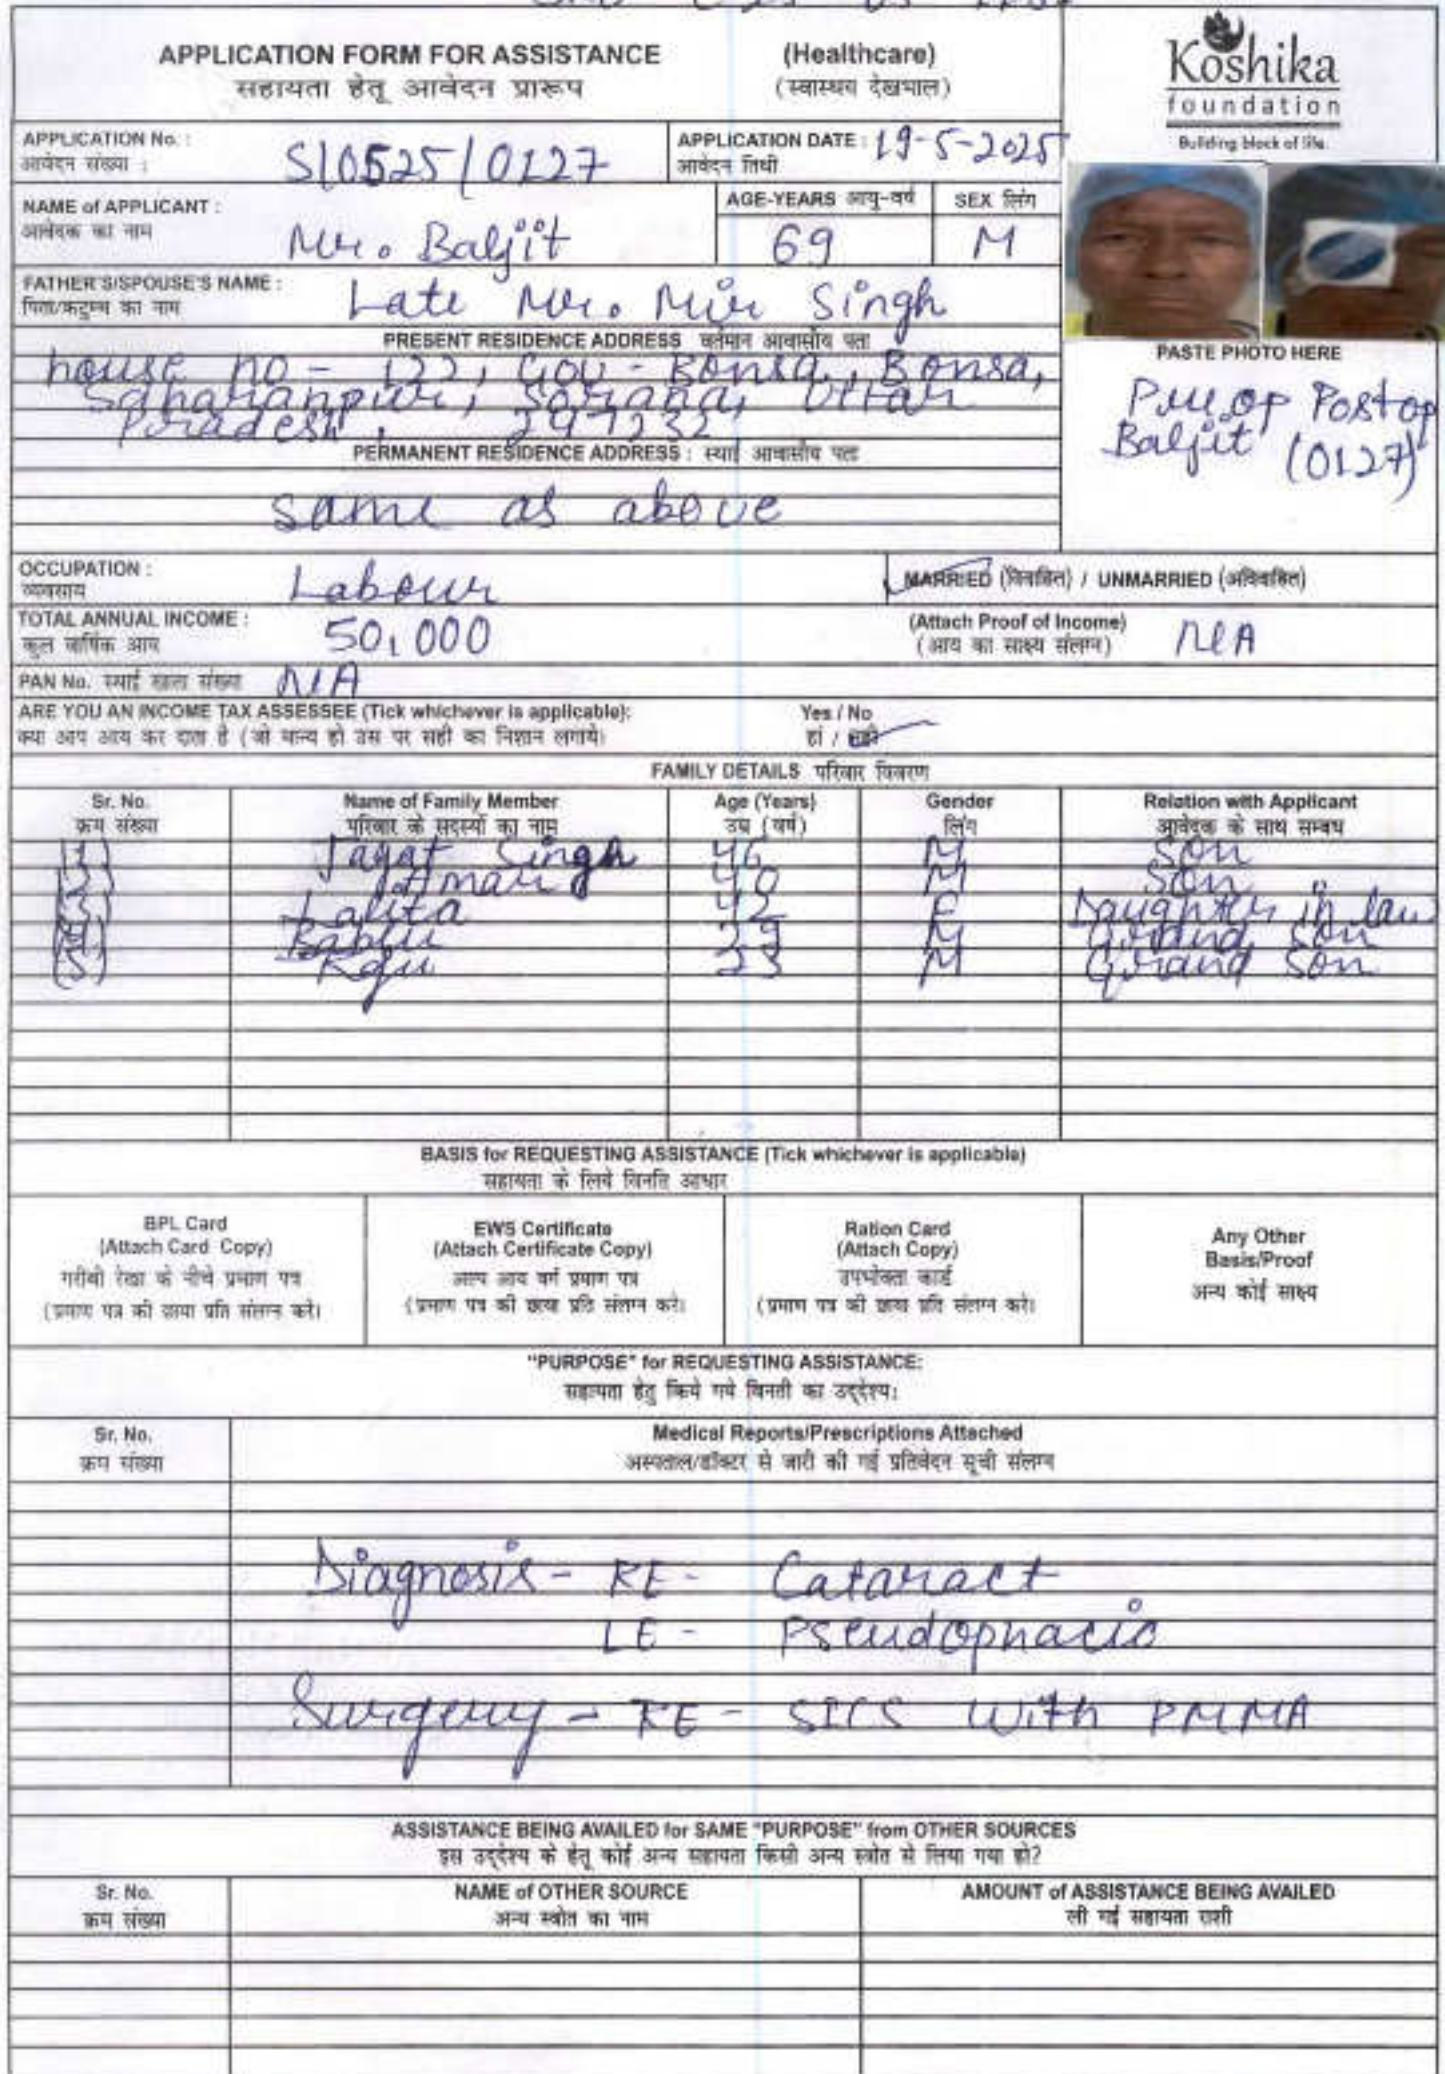 APPLICATION FORM FOR ASSISTANCE (Healthcare)
सहायता हेतू आवेदन प्रारूप (स्वास्थय देखभाल)
Koshika
foundation
Building block of life
APPLICATION No. : S/0525/0127 APPLICATION DATE : 19-5-2025
आवेदन संख्या : आवेदन तिथी
NAME of APPLICANT : Mr. Baljit AGE-YEARS आयु-वर्ष 69 SEX लिंग M
आवेदक का नाम
FATHER'S/SPOUSE'S NAME : Late Mr. Mir Singh
पिता/कटुम्ब का नाम
PRESENT RESIDENCE ADDRESS वर्तमान आवासीय पता
house no - 122, Gov - Bonsa, Bonsa,
Saharanpur, Sorana, Uttar
Pradesh, 247232
PERMANENT RESIDENCE ADDRESS : स्थाई आवासीय पता
same as above
PASTE PHOTO HERE
Pre op Post op
Baljit (0127)
OCCUPATION : Labour MARRIED (विवाहित) / UNMARRIED (अविवाहित)
व्यवसाय
TOTAL ANNUAL INCOME : 50,000 (Attach Proof of Income) N/A
कुल वार्षिक आय (आय का साक्ष्य संलग्न)
PAN No. स्थाई खाता संख्या N/A
ARE YOU AN INCOME TAX ASSESSEE (Tick whichever is applicable): Yes / No
क्या आप आय कर दाता है (जो मान्य हो उस पर सही का निशान लगाये) हां / नहीं
FAMILY DETAILS परिवार विवरण
Sr. No. Name of Family Member Age (Years) Gender Relation with Applicant
क्रम संख्या परिवार के सदस्यों का नाम उम्र (वर्ष) लिंग आवेदक के साथ सम्बध
(1) Jagat Singh 46 M Son
(2) Aman 40 M Son
(3) Lalita 42 F Daughter in law
(4) Bablu 29 M Grand Son
(5) Raju 23 M Grand Son
BASIS for REQUESTING ASSISTANCE (Tick whichever is applicable)
सहायता के लिये विनति आधार
BPL Card
(Attach Card Copy)
गरीबी रेखा के नीचे प्रमाण पत्र
(प्रमाण पत्र की छाया प्रति संलग्न करे।
EWS Certificate
(Attach Certificate Copy)
अल्प आय वर्ग प्रमाण पत्र
(प्रमाण पत्र की छाया प्रति संलग्न करे।
Ration Card
(Attach Copy)
उपभोक्ता कार्ड
(प्रमाण पत्र की छाया प्रति संलग्न करे।
Any Other
Basis/Proof
अन्य कोई साक्ष्य
"PURPOSE" for REQUESTING ASSISTANCE:
सहायता हेतु किये गये विनती का उद्देश्य:
Sr. No. Medical Reports/Prescriptions Attached
क्रम संख्या अस्पताल/डॉक्टर से जारी की गई प्रतिवेदन सूची संलग्न
Diagnosis - RE - Cataract
LE - Pseudophacic
Surgery - RE - SICS With PMMA
ASSISTANCE BEING AVAILED for SAME "PURPOSE" from OTHER SOURCES
इस उद्देश्य के हेतू कोई अन्य सहायता किसी अन्य स्त्रोत से लिया गया हो?
Sr. No. NAME of OTHER SOURCE AMOUNT of ASSISTANCE BEING AVAILED
क्रम संख्या अन्य स्त्रोत का नाम ली गई सहायता राशी